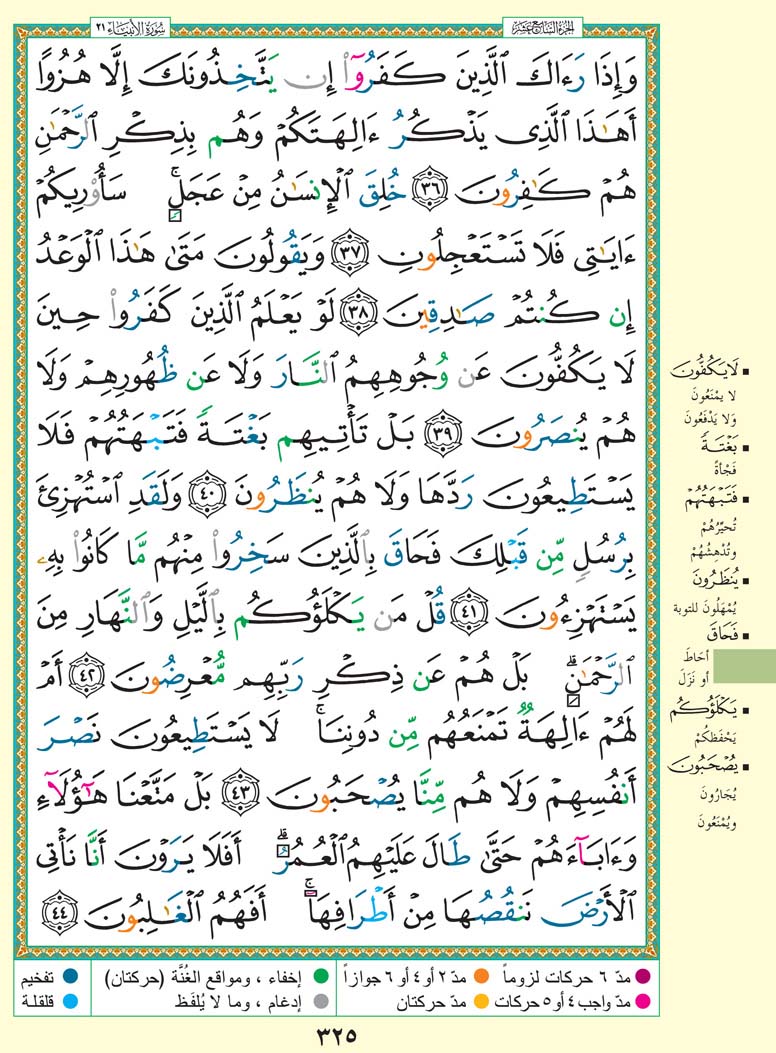 الجزء السابع عشر
سورة الأنبياء ٢١
وَإِذَا رَءَاكَ ٱلَّذِينَ كَفَرُوٓا۟ إِن يَتَّخِذُونَكَ إِلَّا هُزُوًا
أَهَٰذَا ٱلَّذِى يَذْكُرُ ءَالِهَتَكُمْ وَهُم بِذِكْرِ ٱلرَّحْمَٰنِ
هُمْ كَٰفِرُونَ ٣٦ خُلِقَ ٱلْإِنسَٰنُ مِنْ عَجَلٍۚ سَأُو۟رِيكُمْ
ءَايَٰتِى فَلَا تَسْتَعْجِلُونِ ٣٧ وَيَقُولُونَ مَتَىٰ هَٰذَا ٱلْوَعْدُ
إِن كُنتُمْ صَٰدِقِينَ ٣٨ لَوْ يَعْلَمُ ٱلَّذِينَ كَفَرُوا۟ حِينَ
لَا يَكُفُّونَ عَن وُجُوهِهِمُ ٱلنَّارَ وَلَا عَن ظُهُورِهِمْ وَلَا
هُمْ يُنصَرُونَ ٣٩ بَلْ تَأْتِيهِم بَغْتَةً فَتَبْهَتُهُمْ فَلَا
يَسْتَطِيعُونَ رَدَّهَا وَلَا هُمْ يُنظَرُونَ ٤٠ وَلَقَدِ ٱسْتُهْزِئَ
بِرُسُلٍ مِّن قَبْلِكَ فَحَاقَ بِٱلَّذِينَ سَخِرُوا۟ مِنْهُم مَّا كَانُوا۟ بِهِۦ
يَسْتَهْزِءُونَ ٤١ قُلْ مَن يَكْلَؤُكُم بِٱلَّيْلِ وَٱلنَّهَارِ مِنَ
ٱلرَّحْمَٰنِۗ بَلْ هُمْ عَن ذِكْرِ رَبِّهِم مُّعْرِضُونَ ٤٢ أَمْ
لَهُمْ ءَالِهَةٌ تَمْنَعُهُم مِّن دُونِنَاۚ لَا يَسْتَطِيعُونَ نَصْرَ
أَنفُسِهِمْ وَلَا هُم مِّنَّا يُصْحَبُونَ ٤٣ بَلْ مَتَّعْنَا هَٰٓؤُلَآءِ
وَءَابَآءَهُمْ حَتَّىٰ طَالَ عَلَيْهِمُ ٱلْعُمُرُۗ أَفَلَا يَرَوْنَ أَنَّا نَأْتِى
ٱلْأَرْضَ نَنقُصُهَا مِنْ أَطْرَافِهَآۚ أَفَهُمُ ٱلْغَٰلِبُونَ ٤٤
لَا يَكُفُّونَ
لا يمْنَعُونَ
وَلا يَدْفَعُونَ
بَغْتَةً
فَجْأةً
فَتَبْهَتُهُمْ
تُحَيِّرُهُمْ
وتُدْهِشُهُمْ
يُنظَرُونَ
يُمْهَلُونَ للتوبة
فَحَاقَ
أحَاطَ
أو نَزَلَ
يَكْلَؤُكُم
يَحْفَظكُمْ
يُصْحَبُونَ
يُجَارُونَ
ويُمْنَعُونَ
مدّ ٦ حركات لزوماً
مدّ واجب ٤ أو ٥ حركات
مدّ ٢ أو ٤ أو ٦ جوازاً
مدّ حركتان
إخفاء ، ومواقع الغُنَّة (حركتان)
إدغام ، وما لا يُلفَظ
تفخيم
قلقلة
٣٢٥